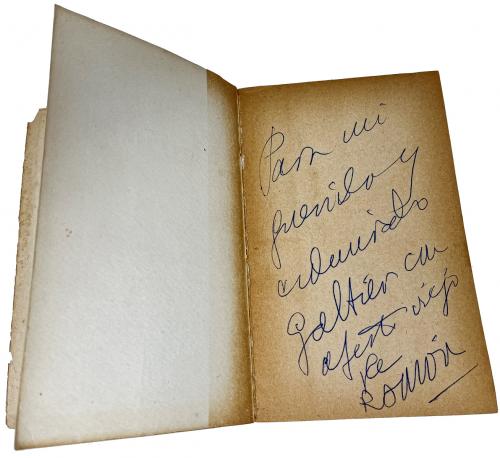 Para mi
querido y
admirado
Galtier con
afecto viejo
de
RAMÓN